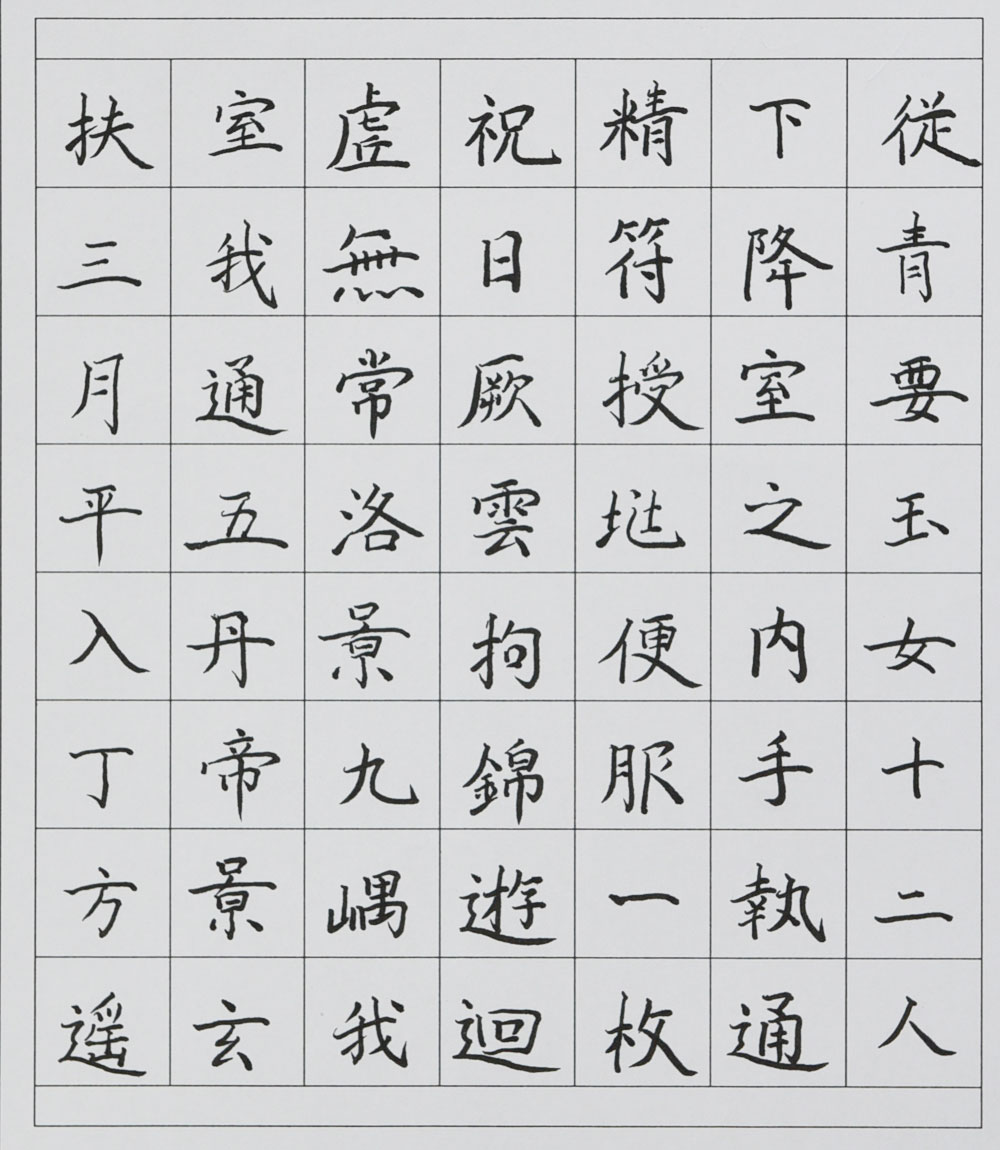 従青要玉女十二人
下降室之内手執通
精符授便服一枚
祝日厥雲拘錦遊迴
虚無常洛景九嵎我
室我通五丹帝景玄
扶三月平入丁方遥